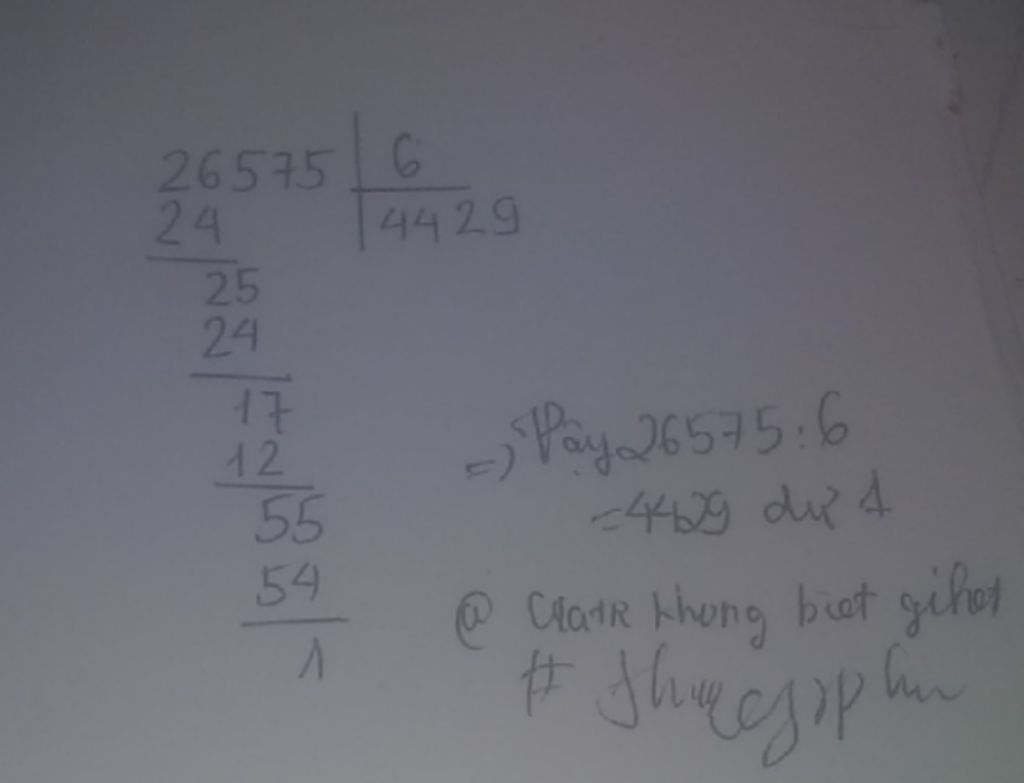 26575 6
24 4429
25
24
17
12
55
54
1
=) Vậy 26575 : 6
= 4429 dư 1
@ khong biet gihet
#